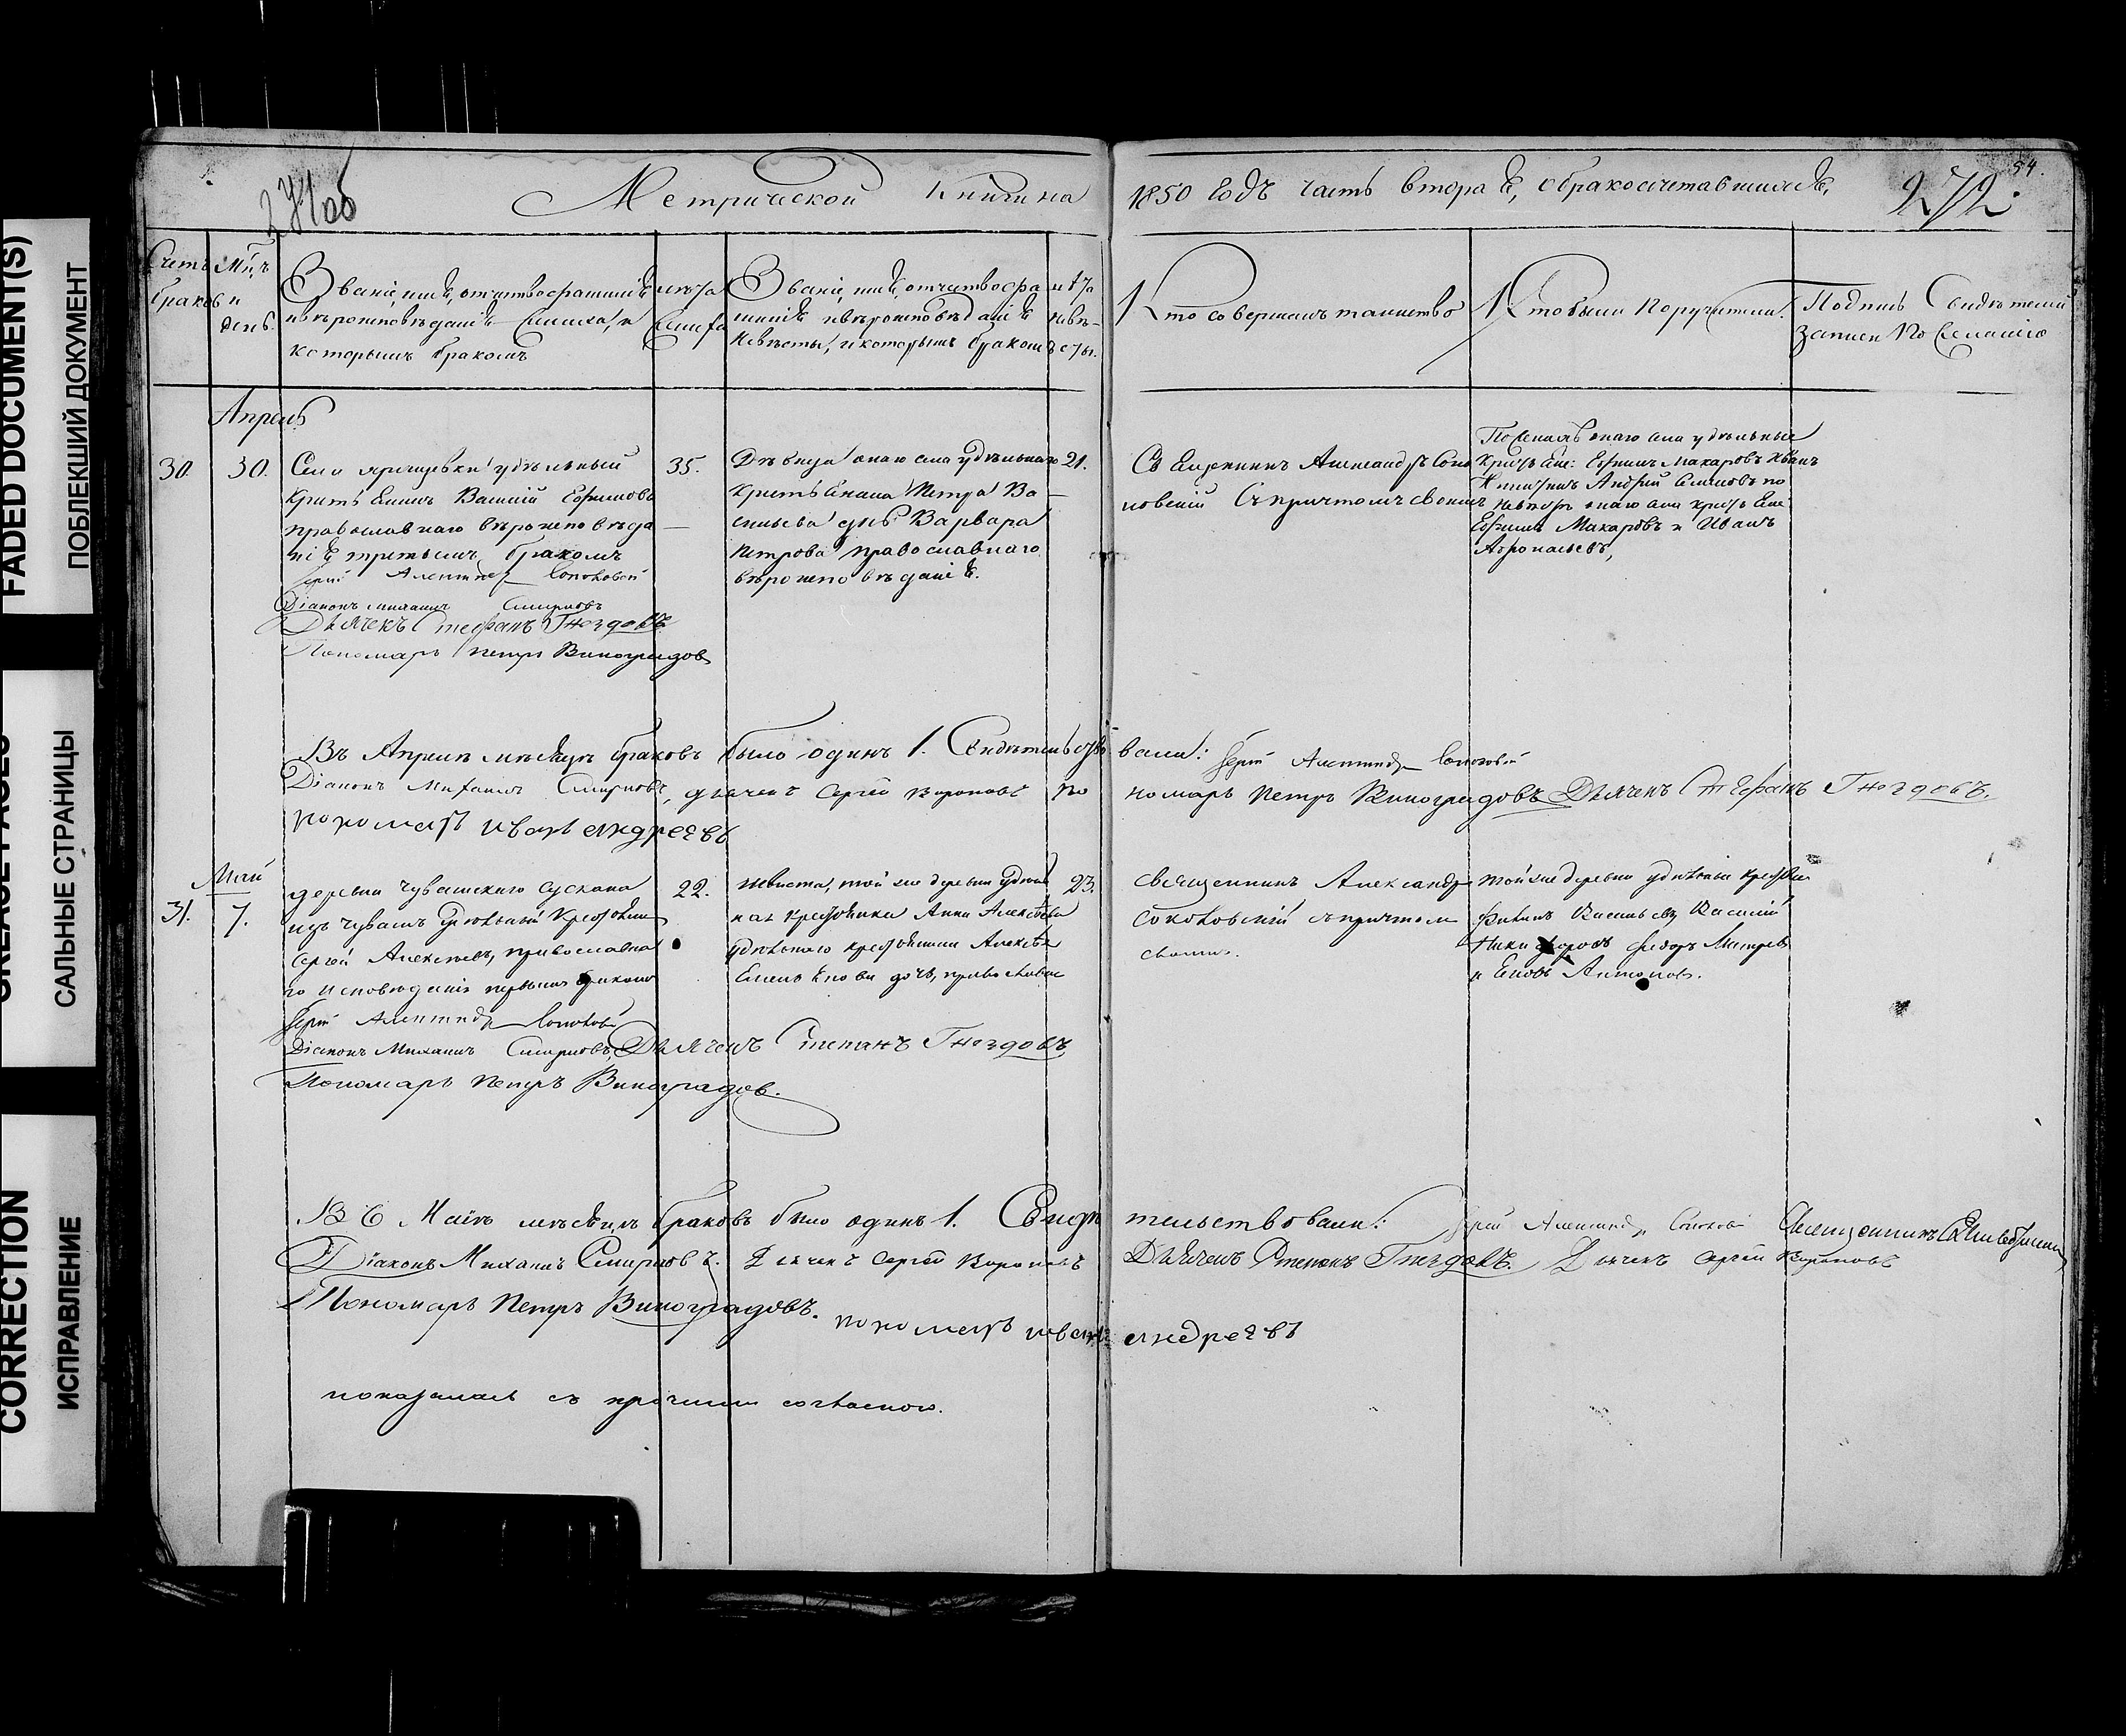 FADED DOCUMENT(S)
ПОБЛЕКШИЙ ДОКУМЕНТ
САЛЬНЫЕ СТРАНИЦЫ
CORRECTION
ИСПРАВЛЕНИЕ
271об
Метрической книги на
1850 годъ часть вторая, о бракосочетавшихся,
272.
54.
Счетъ браковъ
Мц.ъ и день.
Званiе, имя, отчество фамилiя
и вѣроисповѣданiе жениха, и
которымъ бракомъ
лѣта жениха
Званiе, имя, отчество фа
милiя и вѣроисповѣданiе
невѣсты, и которымъ бракомъ
лѣта невѣсты.
Кто совершалъ таинство
Кто были поручители.
Подпись свидѣтелей
записи по желанiю
Апрель
30.
30.
Села удѣльный
крестьянинъ Василiй Ефимовъ
православнаго вѣроисповѣда
нiя третьимъ бракомъ
35.
Дѣвица онаго села удѣльнаго
крестьянина Петра Ва
сильева дочь Варвара
Петрова православнаго
вѣроисповѣданiя.
21.
Священникъ Александръ Соко
ловскiй съ причтомъ своимъ
По женихѣ онаго села удѣльные
крестьяне: Ефимъ Макаровъ Иванъ
Андрей Семеновъ по
невѣстѣ онаго села крестьяне
Ефимъ Макаровъ и Иванъ
Афонасьевъ,
Iерей Александръ Соколовскiй
Дiаконъ Михаилъ Смирновъ
Дьячекъ Стефанъ Гнездовъ
Пономарь Петръ Виноградовъ
Въ Апрелѣ мѣсяцѣ браковъ было одинъ 1. Свидѣтельство
вали: Iерей Александръ Соколовскiй
Дiаконъ Михаилъ Смирновъ, дьячекъ Сергей Вороновъ по
номарь Петръ Виноградовъ Дьячекъ Стефанъ Гнездовъ.
пономарь иванъ андреевъ
Май
31.
7.
деревни чувашскаго Сускана
изъ чувашъ удѣльный крестьянинъ
Сергей Алексѣевъ, православна
го исповѣданiя первымъ бракомъ
22.
невѣста, той же деревни удѣль
ная крестьянка Анна Алексѣева
удѣльнаго крестьянина Алексѣя
дочь, православнаго
23.
священникъ Александръ
Соколовскiй съ причтомъ
своимъ.
той же деревни удѣльные крестьяне
Филипъ Васильевъ Василiй
Никифоровъ Федоръ Митрiевъ
и Антоновъ.
Iерей Александръ Соколовскiй
Дiаконъ Михаилъ Смирновъ, Дьячекъ Степанъ Гнездовъ,
Пономарь Петръ Виноградов.
Въ Маiѣ мѣсяцѣ браковъ было одинъ 1. Свидѣ
тельствовали: Iерей Александръ Соколовскiй Священникъ
Дiаконъ Михаилъ Смирновъ. Дьячекъ Сергей Вороновъ
Дьячекъ Степанъ Гнездовъ. Дьячекъ Сергей Вороновъ
Пономарь Петръ Виноградовъ. пономарь иванъ андреевъ
показалась съ прочими согласною.